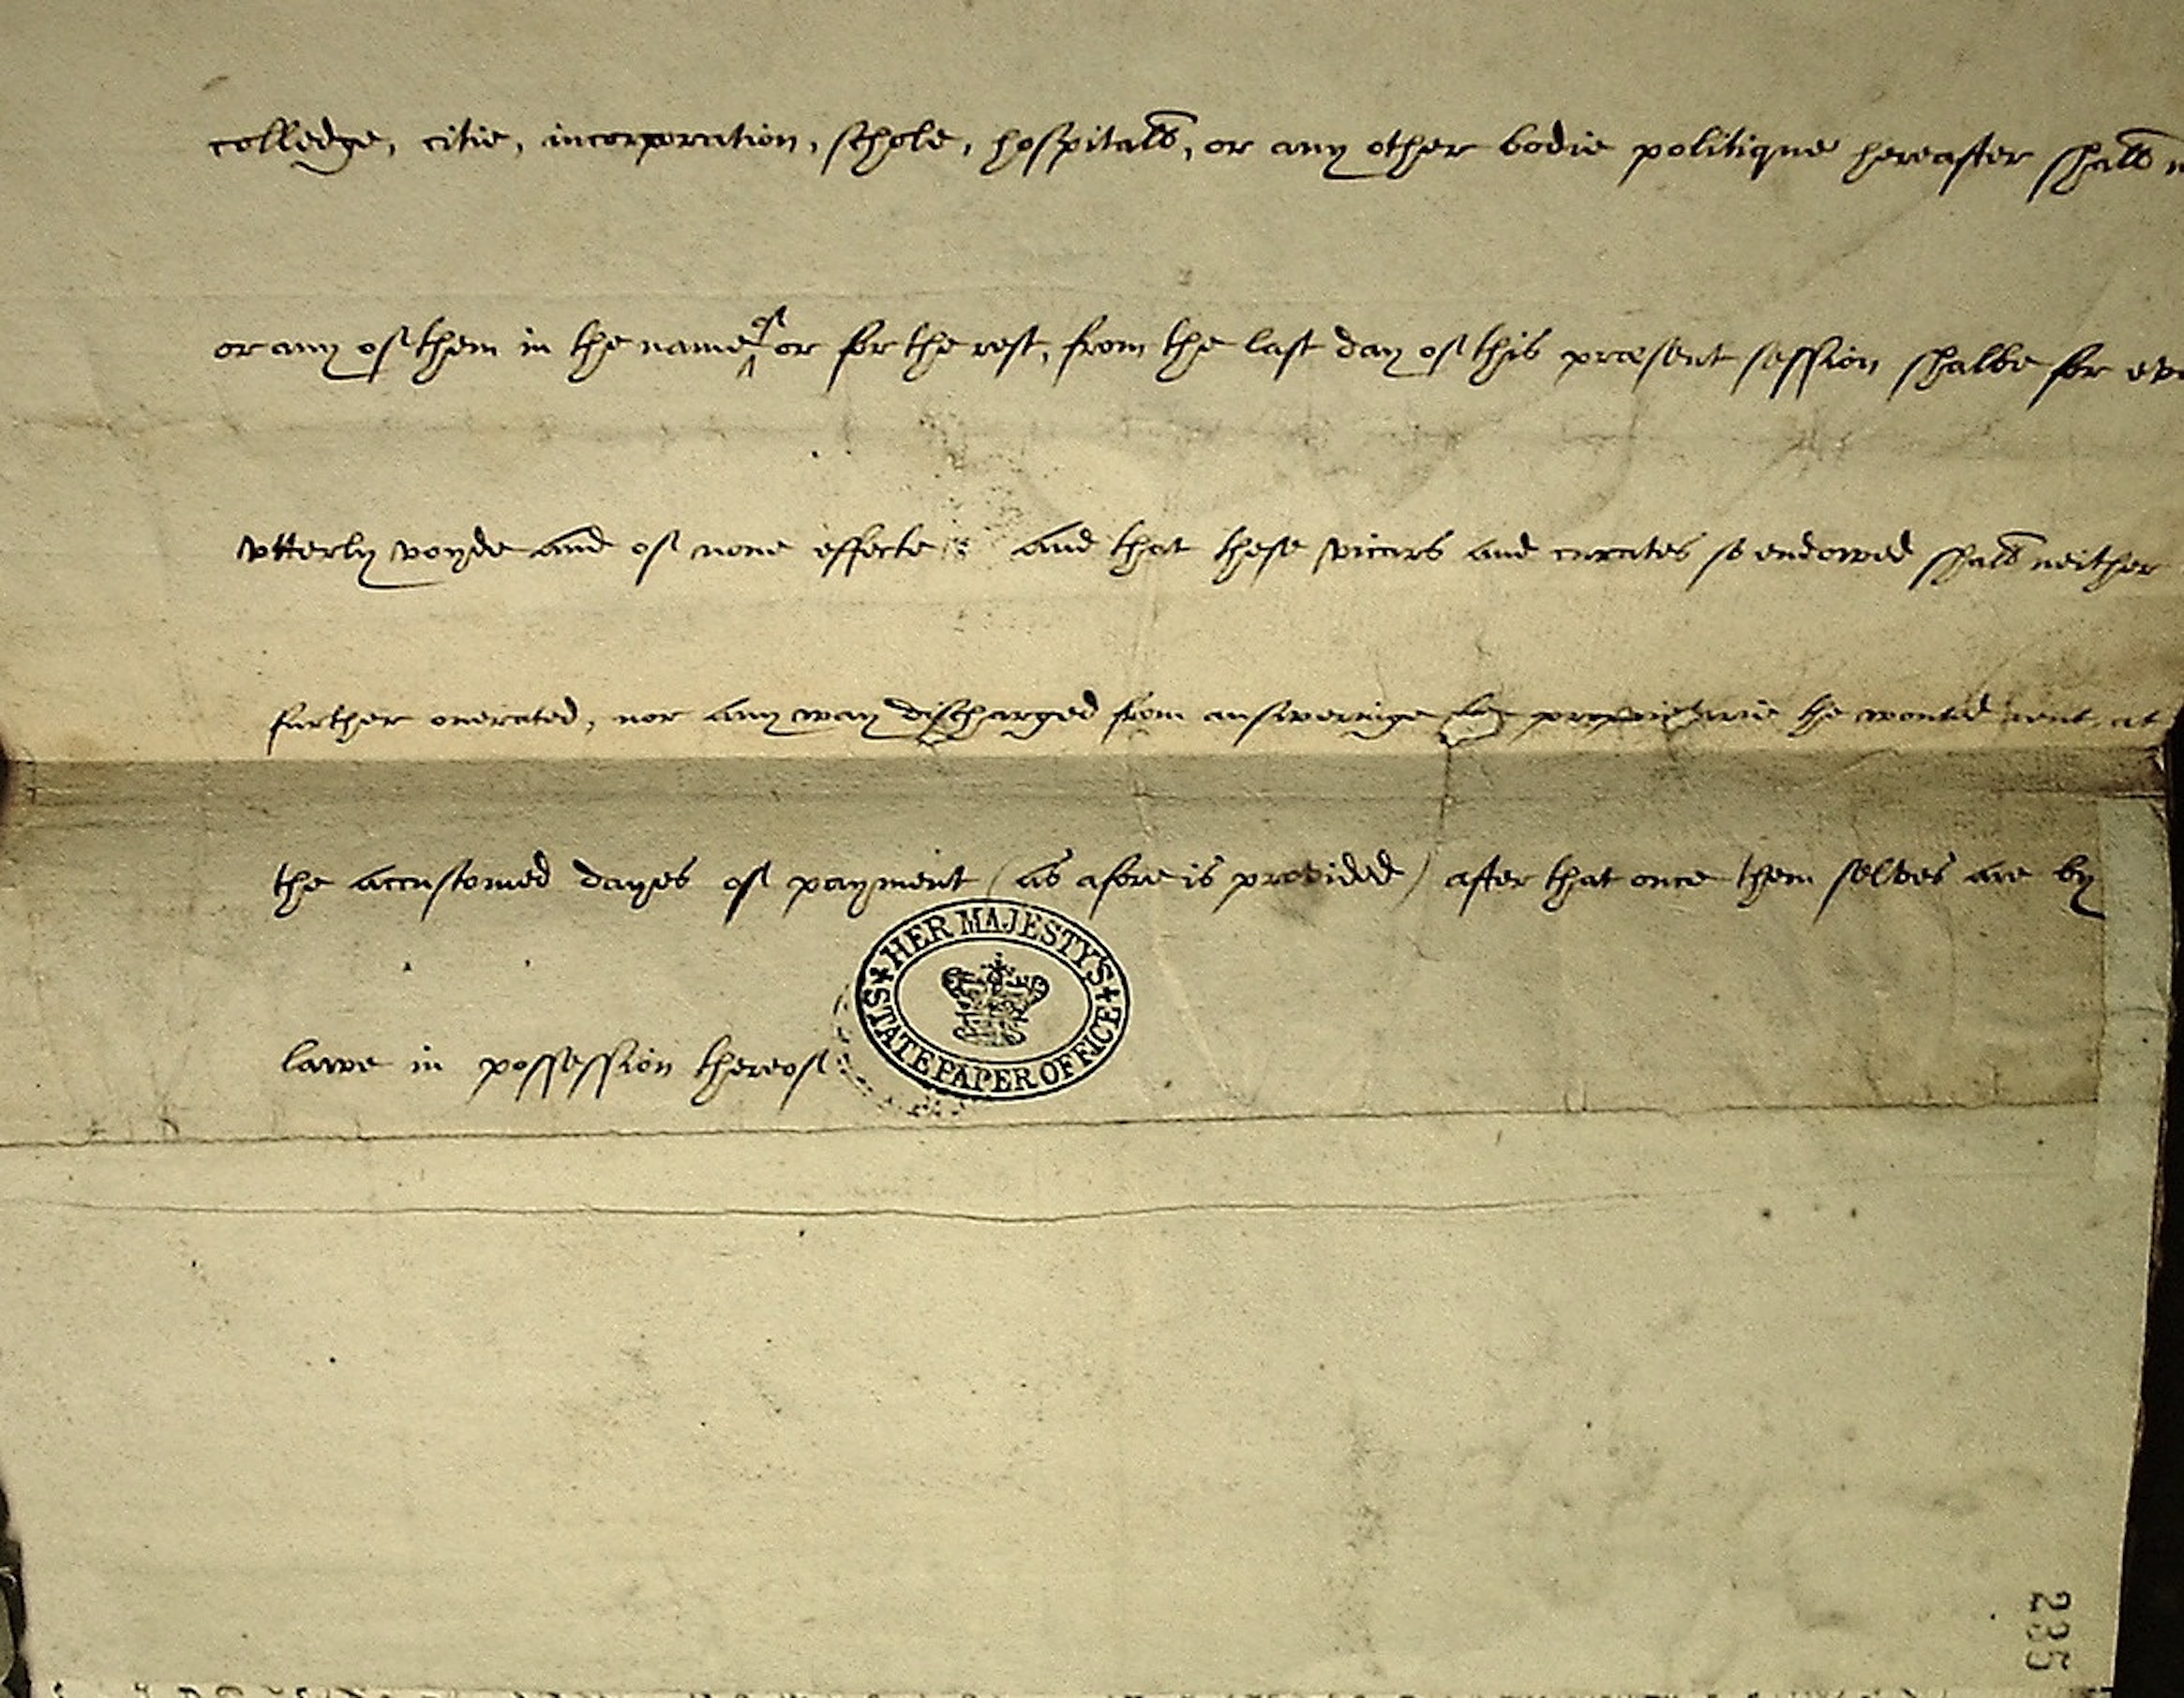 colledge, citie, incorporation, schole, hospitall, or any other bodie politique hereafter shall
or any of them in the name of or for the rest, from the last day of this præsent session shalbe for
vtterly voyde and of none effecte : and that these vicars and curates so endowed shall neither
further onerated, nor any way discharged from answeringe proprietarie the wonted rent, at
the accustomed dayes of payment (as afore is provided) after that once them selves are by
lawe in possession thereof
HER MAJESTY'S
STATE PAPER OFFICE
235